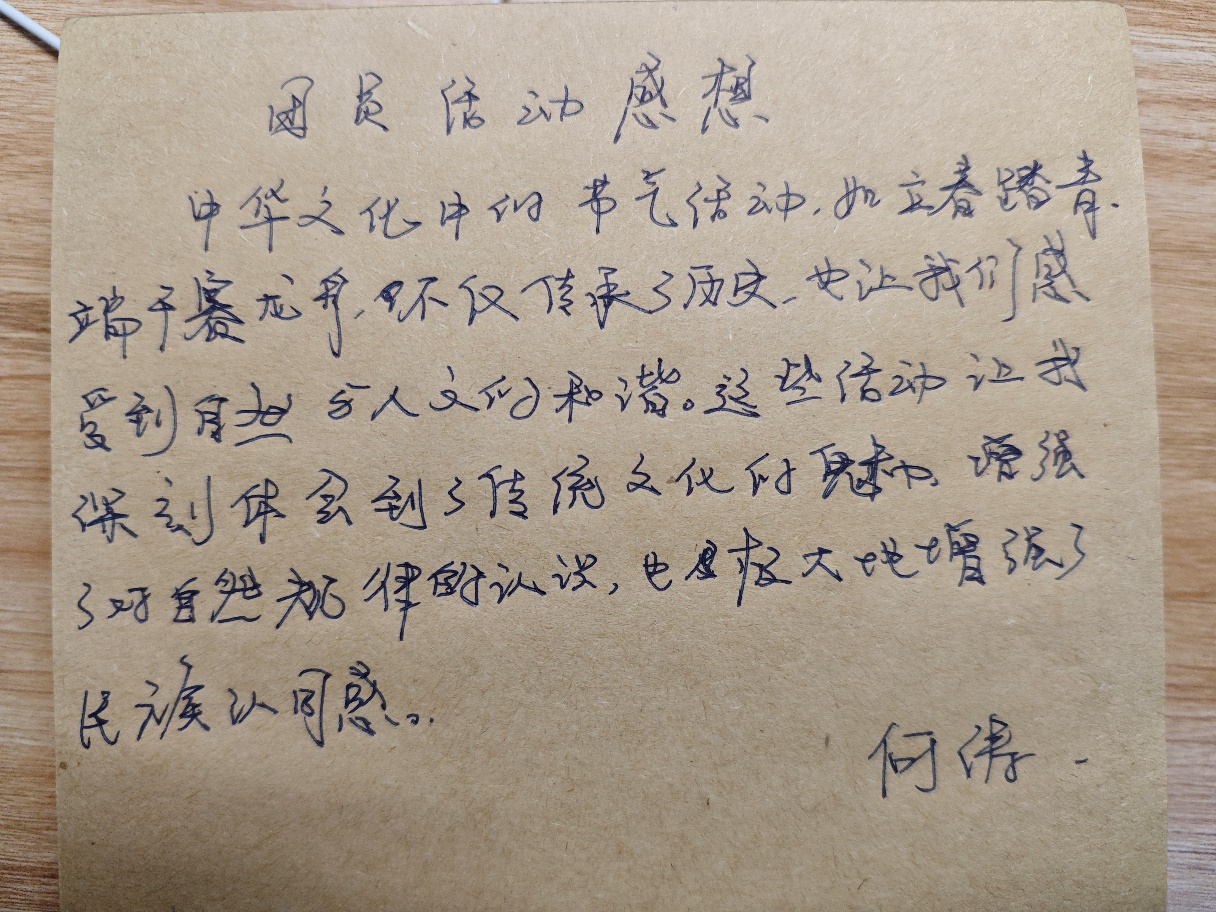 团员活动感想
中华文化中的节气活动，如立春踏青、
端午赛龙舟，不仅传承了历史，也让我们感
受到自然与人文的和谐。这些活动让我
深刻体会到了传统文化的魅力，增强
了对自然规律的认识，也极大地增强了
民族认同感。
何涛